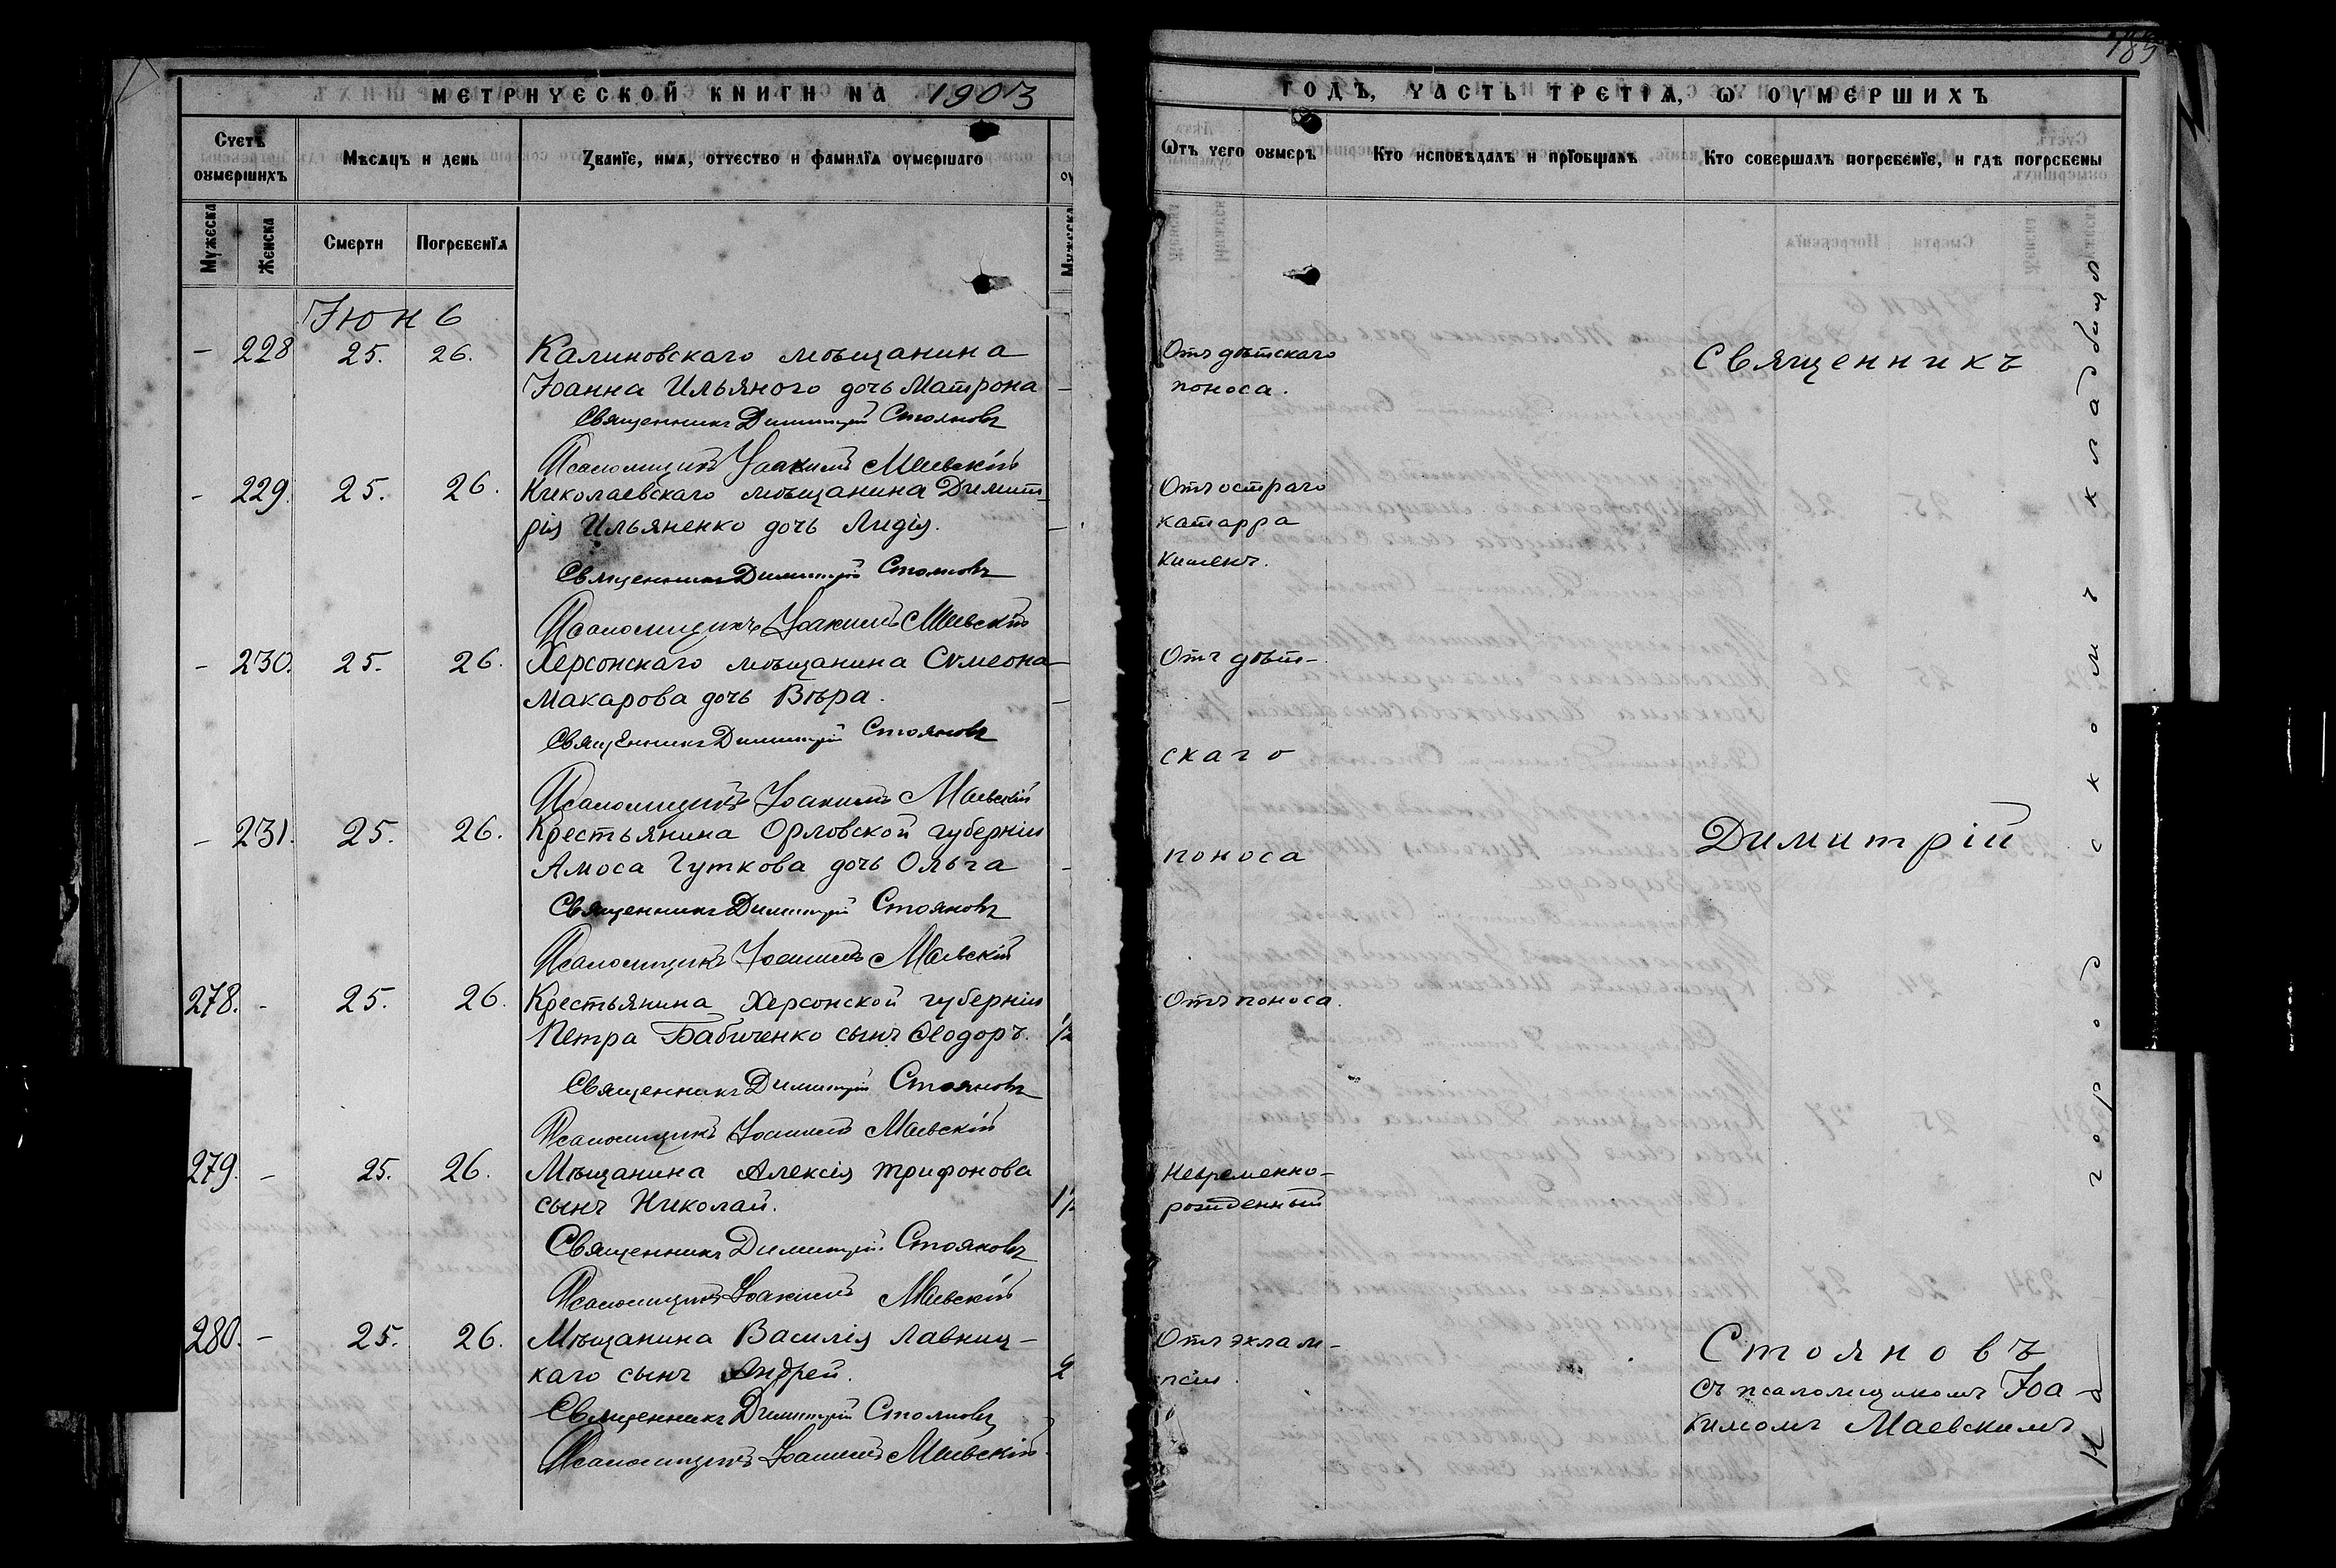 МЕТРИЧЕСКОЙ КНИГИ НА 1903
Счетъ оумершихъ
Мѣсяцъ и день
Званїе, имя, отчество и фамилїя оумершаго
Мужеска
Женска
Смерти
Погребенїя
Мужеска
Іюнь
- 228 25. 26. Калиновскаго мѣщанина
Іоанна Ильяного дочь Матрона -
Священникъ Димитрій Стояновъ
Псаломщикъ Іоакимъ Маевскій
- 229. 25. 26. Николаевскаго мѣщанина Димит-
рія Ильяненко дочь Лидія. -
Священникъ Димитрій Стояновъ
Псаломщикъ Іоакимъ Маевскій
- 230. 25. 26. Херсонскаго мѣщанина Сѵмеона
Макарова дочь Вѣра. -
Священникъ Димитрій Стояновъ
Псаломщикъ Іоакимъ Маевскій
- 231. 25. 26. Крестьянина Орловской губерніи
Амоса Гуткова дочь Ольга -
Священникъ Димитрій Стояновъ
Псаломщикъ Іоакимъ Маевскій
278. - 25. 26. Крестьянина Херсонской губерніи
Петра Бабиченко сынъ Ѳеодоръ. 1/2
Священникъ Димитрій Стояновъ
Псаломщикъ Іоакимъ Маевскій
279. - 25. 26. Мѣщанина Алексія Трифонова
сынъ Николай.
Священникъ Димитрій Стояновъ
Псаломщикъ Іоакимъ Маевскій
280. - 25. 26. Мѣщанина Василія Лавниц-
каго сынъ Андрей.
Священникъ Димитрій Стояновъ
Псаломщикъ Іоакимъ Маевскій
ГОДЪ, ЧАСТЬ ТРЕТІЯ, Ѡ ОУМЕРШИХЪ
Ѿтъ чего оумеръ
Кто исповѣдалъ и прїобщалъ
Кто совершалъ погребенїе, и гдѣ погребены
Отъ дѣтскаго
поноса.
Отъ остраго
катарра
кишекъ.
Отъ дѣт-
скаго
поноса
Отъ поноса.
Невременно-
рожденный
Отъ эклам-
псіи.
Священникъ
Димитрій
Стояновъ
съ псаломщикомъ Іоа
кимомъ Маевскимъ
На городскомъ кладбищѣ